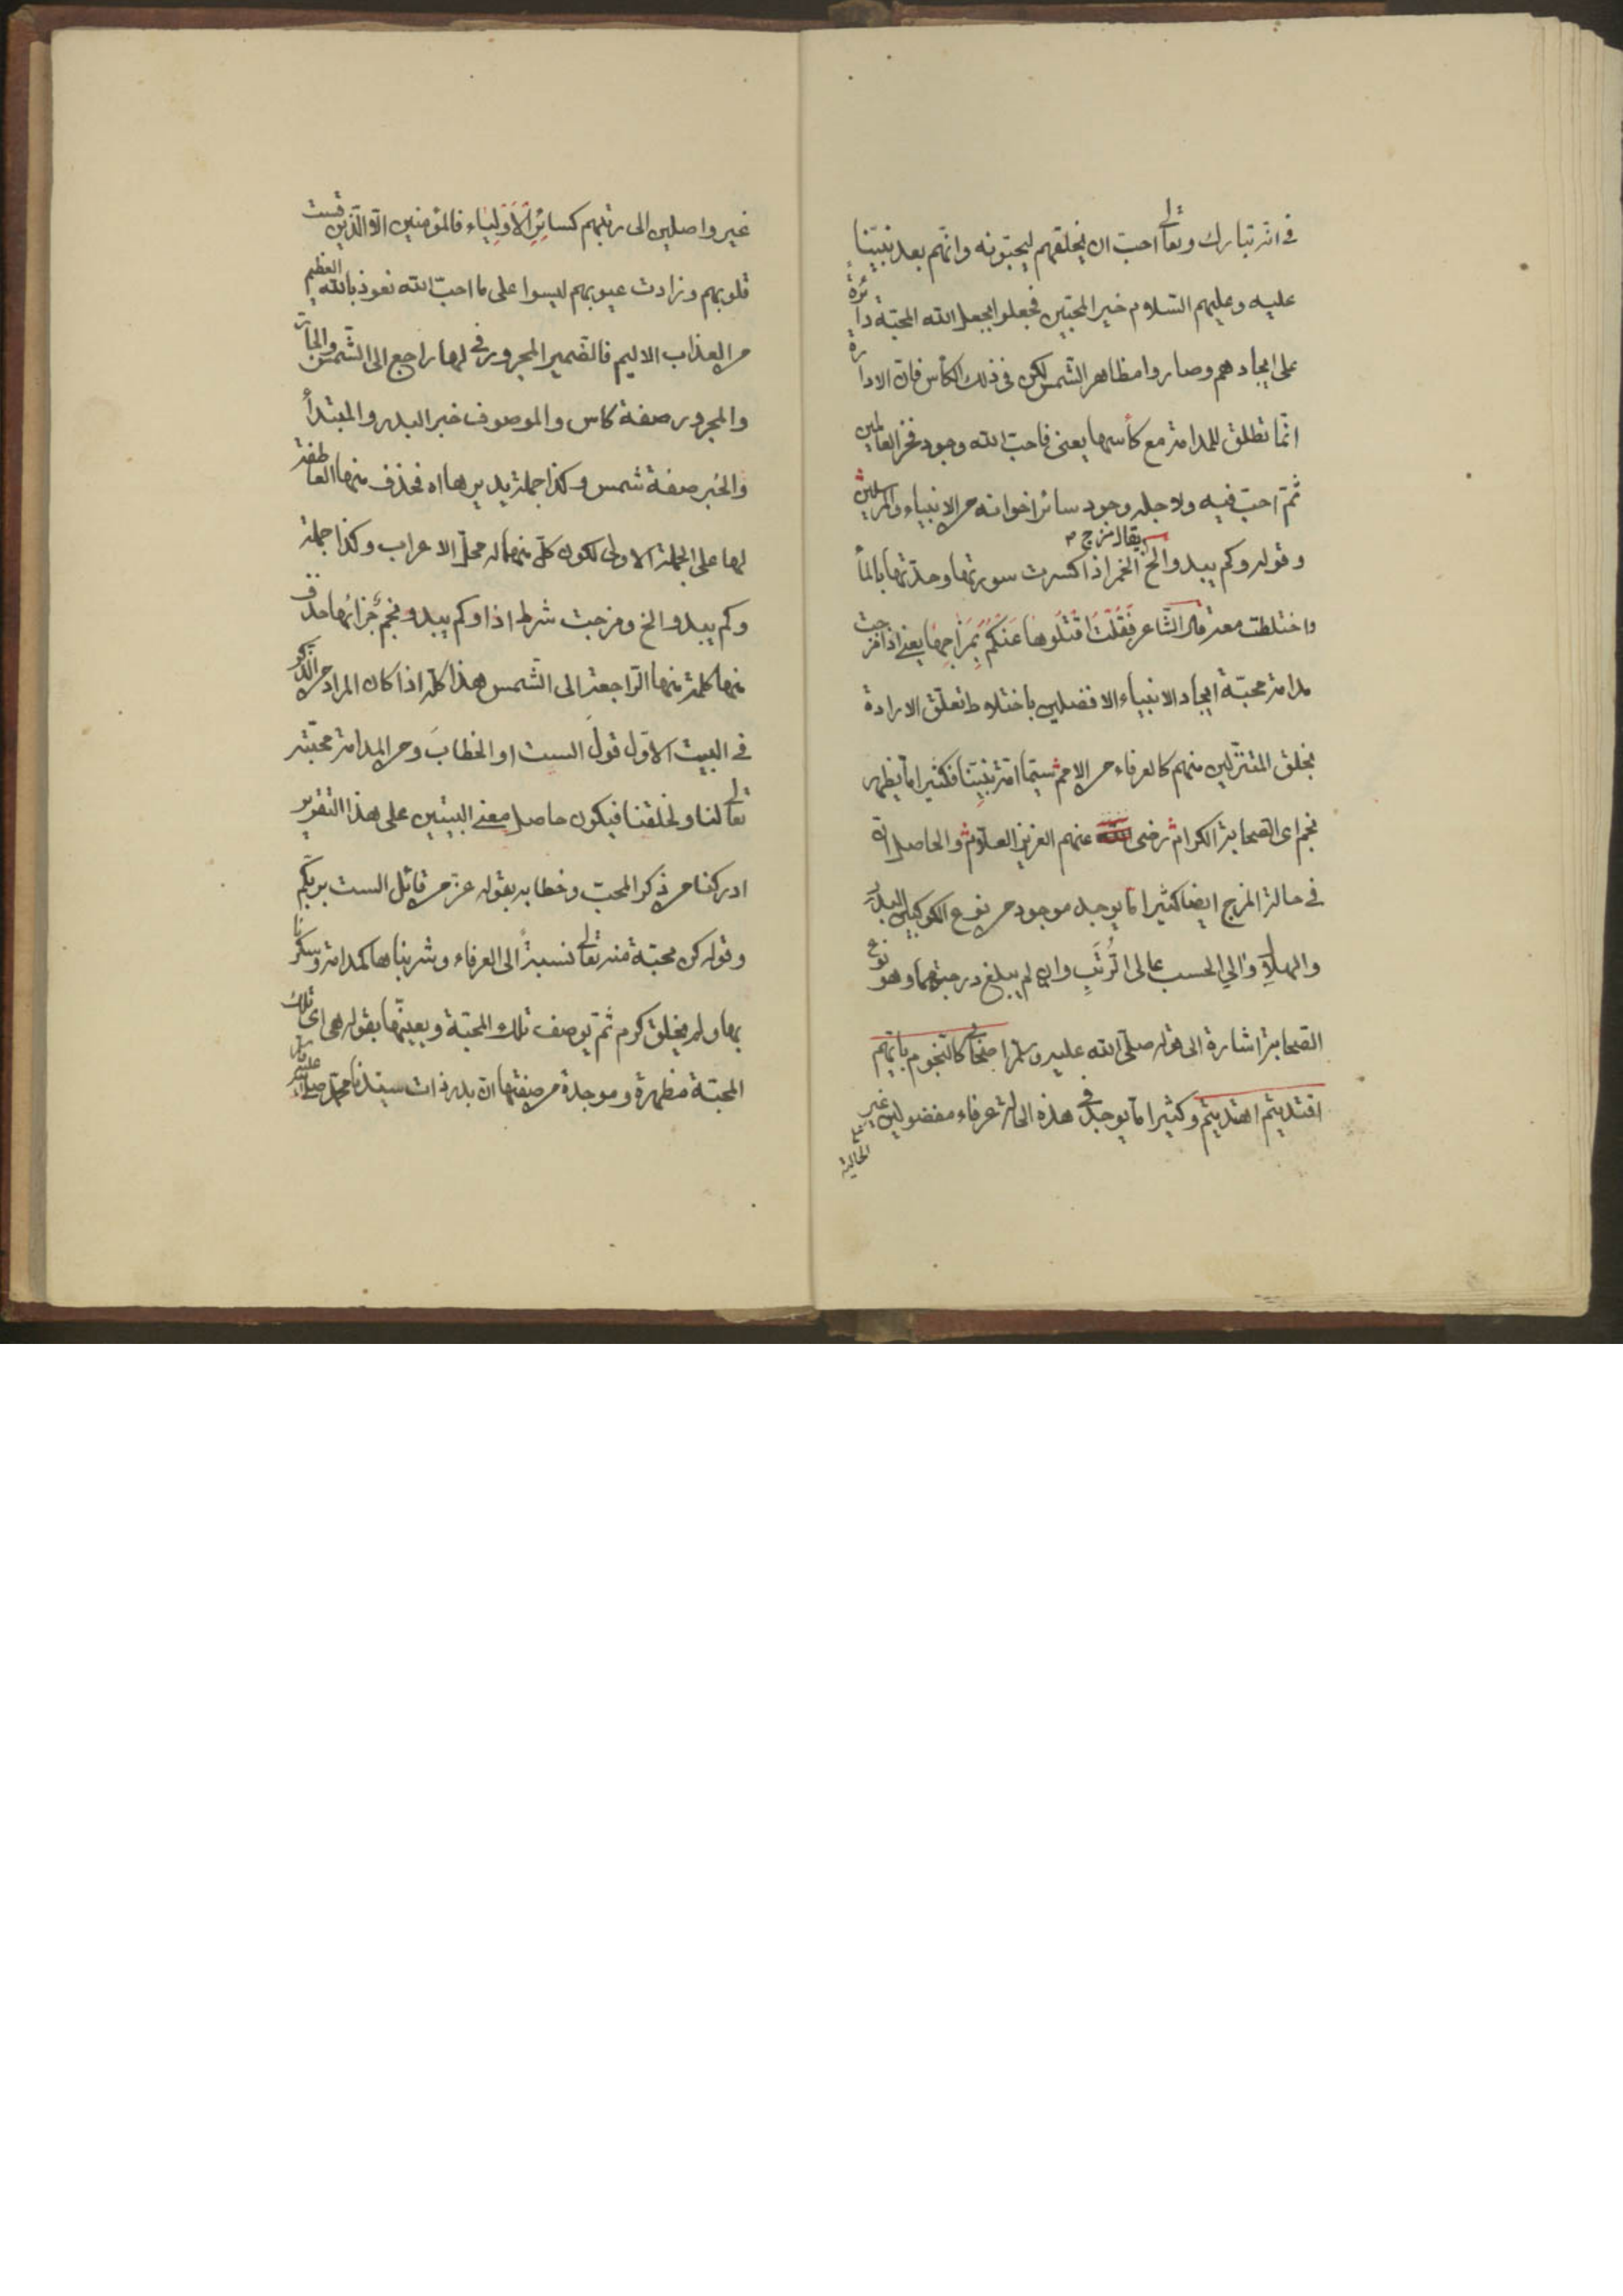 في انه تبارك وتعالى احب ان يخلقهم ليحبونه وانهم بعد نبينا
عليه وعليهم السلام خير المحبين فجعلوا بجعل الله المحبة دائرة
على ايجادهم وصاروا مظاهر الشمس لكن في ذلك الكأس فان الادارة
انما تطلق للمدامة مع كأسها يعنى فاحب الله وجود فخر العالمين
ثم احب فيه ولاجله وجود سائر اخوانه من الانبياء والمرسلين
وقوله وكم يبدو الخ يقال مزج الخمر اذا كسرت سورتها وحدتها بالماء
واختلطت معه قال الشاعر فَقُلْتُ اقْتُلُوهَا عَنْكُمُ بِمَزَاجِهَا يعنى اذا مزجت
مدامة محبة ايجاد الانبياء الافضلين باختلاط تعلق الارادة
بخلق المتنزلين منهم كالعرفاء من الامم سيما امة نبينا فكثيرا ما يظهر
نجم اى الصحابة الكرام رضى عنهم العزيز العلام والحاصل انه
في حالة المزج ايضا كثيرا ما يوجد موجود من نوع الكوكبين البدر
والهلال والي الحسب عالى الرُتَبِ وان لم يبلغ درجتهما وهو نوع
الصحابة اشارة الى قوله صلى الله عليه وسلم اصحابى كالنجوم بايهم
اقتديتم اهتديتم وكثيرا ما يوجد في هذه الحالة عرفاء مفضولين غير
الخالية
غير واصلين الى رتبهم كسائر الاولياء فالمؤمنين الا الذين قست
قلوبهم وزادت عيوبهم ليسوا على ما احب الله نعوذ بالله العظيم
من العذاب الاليم فالضمير المجرور في لها راجع الى الشمس والجار
والمجرور صفة كاس والموصوف خبر البدر والمبتدأ
والخبر صفة شمس وكذا جملة يديرها اه فحذف منها العاطفة
لها على الجملة الاولى لكون كل منهما له محل الاعراب وكذا جملة
وكم يبدو الخ ومزجت شرط اذا وكم يبدو نجم جزائها حذف
منها كلمة منها الراجعة الى الشمس هذا كله اذا كان المراد من الذكر
في البيت الاول قولَ الست او الخطابَ ومن المدامة محبته
تعالى لنا ولخلقنا فيكون حاصل معنى البيتين على هذا التقرير
ادركنا من ذكر المحب وخطابه بقوله عز من قائل الست بربكم
وقوله كن محبة منه تعالى نسبةً الى العرفاء وشربناها كمدامة وسكرنا
بها ولم يخلق كرم ثم يوصف تلك المحبة ويعينها بقوله هى اى تلك
المحبة مظهرة وموجدة من صفتها ان بدر ذات سيدنا محمد صلى الله عليه وسلم